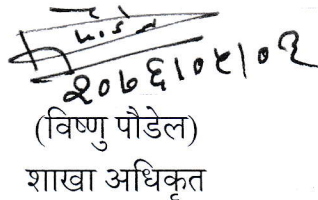 २०७६।०५।०१
(विष्णु पौडेल)
शाखा अधिकृत